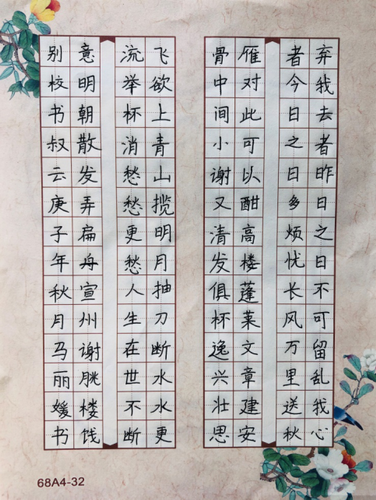 弃我去者昨日之日不可留乱我心
者今日之日多烦忧长风万里送秋
雁对此可以酣高楼蓬莱文章建安
骨中间小谢又清发俱杯逸兴壮思
飞欲上青山揽明月抽刀断水水更
流举杯消愁愁更愁人生在世不断
意明朝散发弄扁舟宣州谢朓楼饯
别校书叔云庚子年秋月马丽媛书
68A4-32